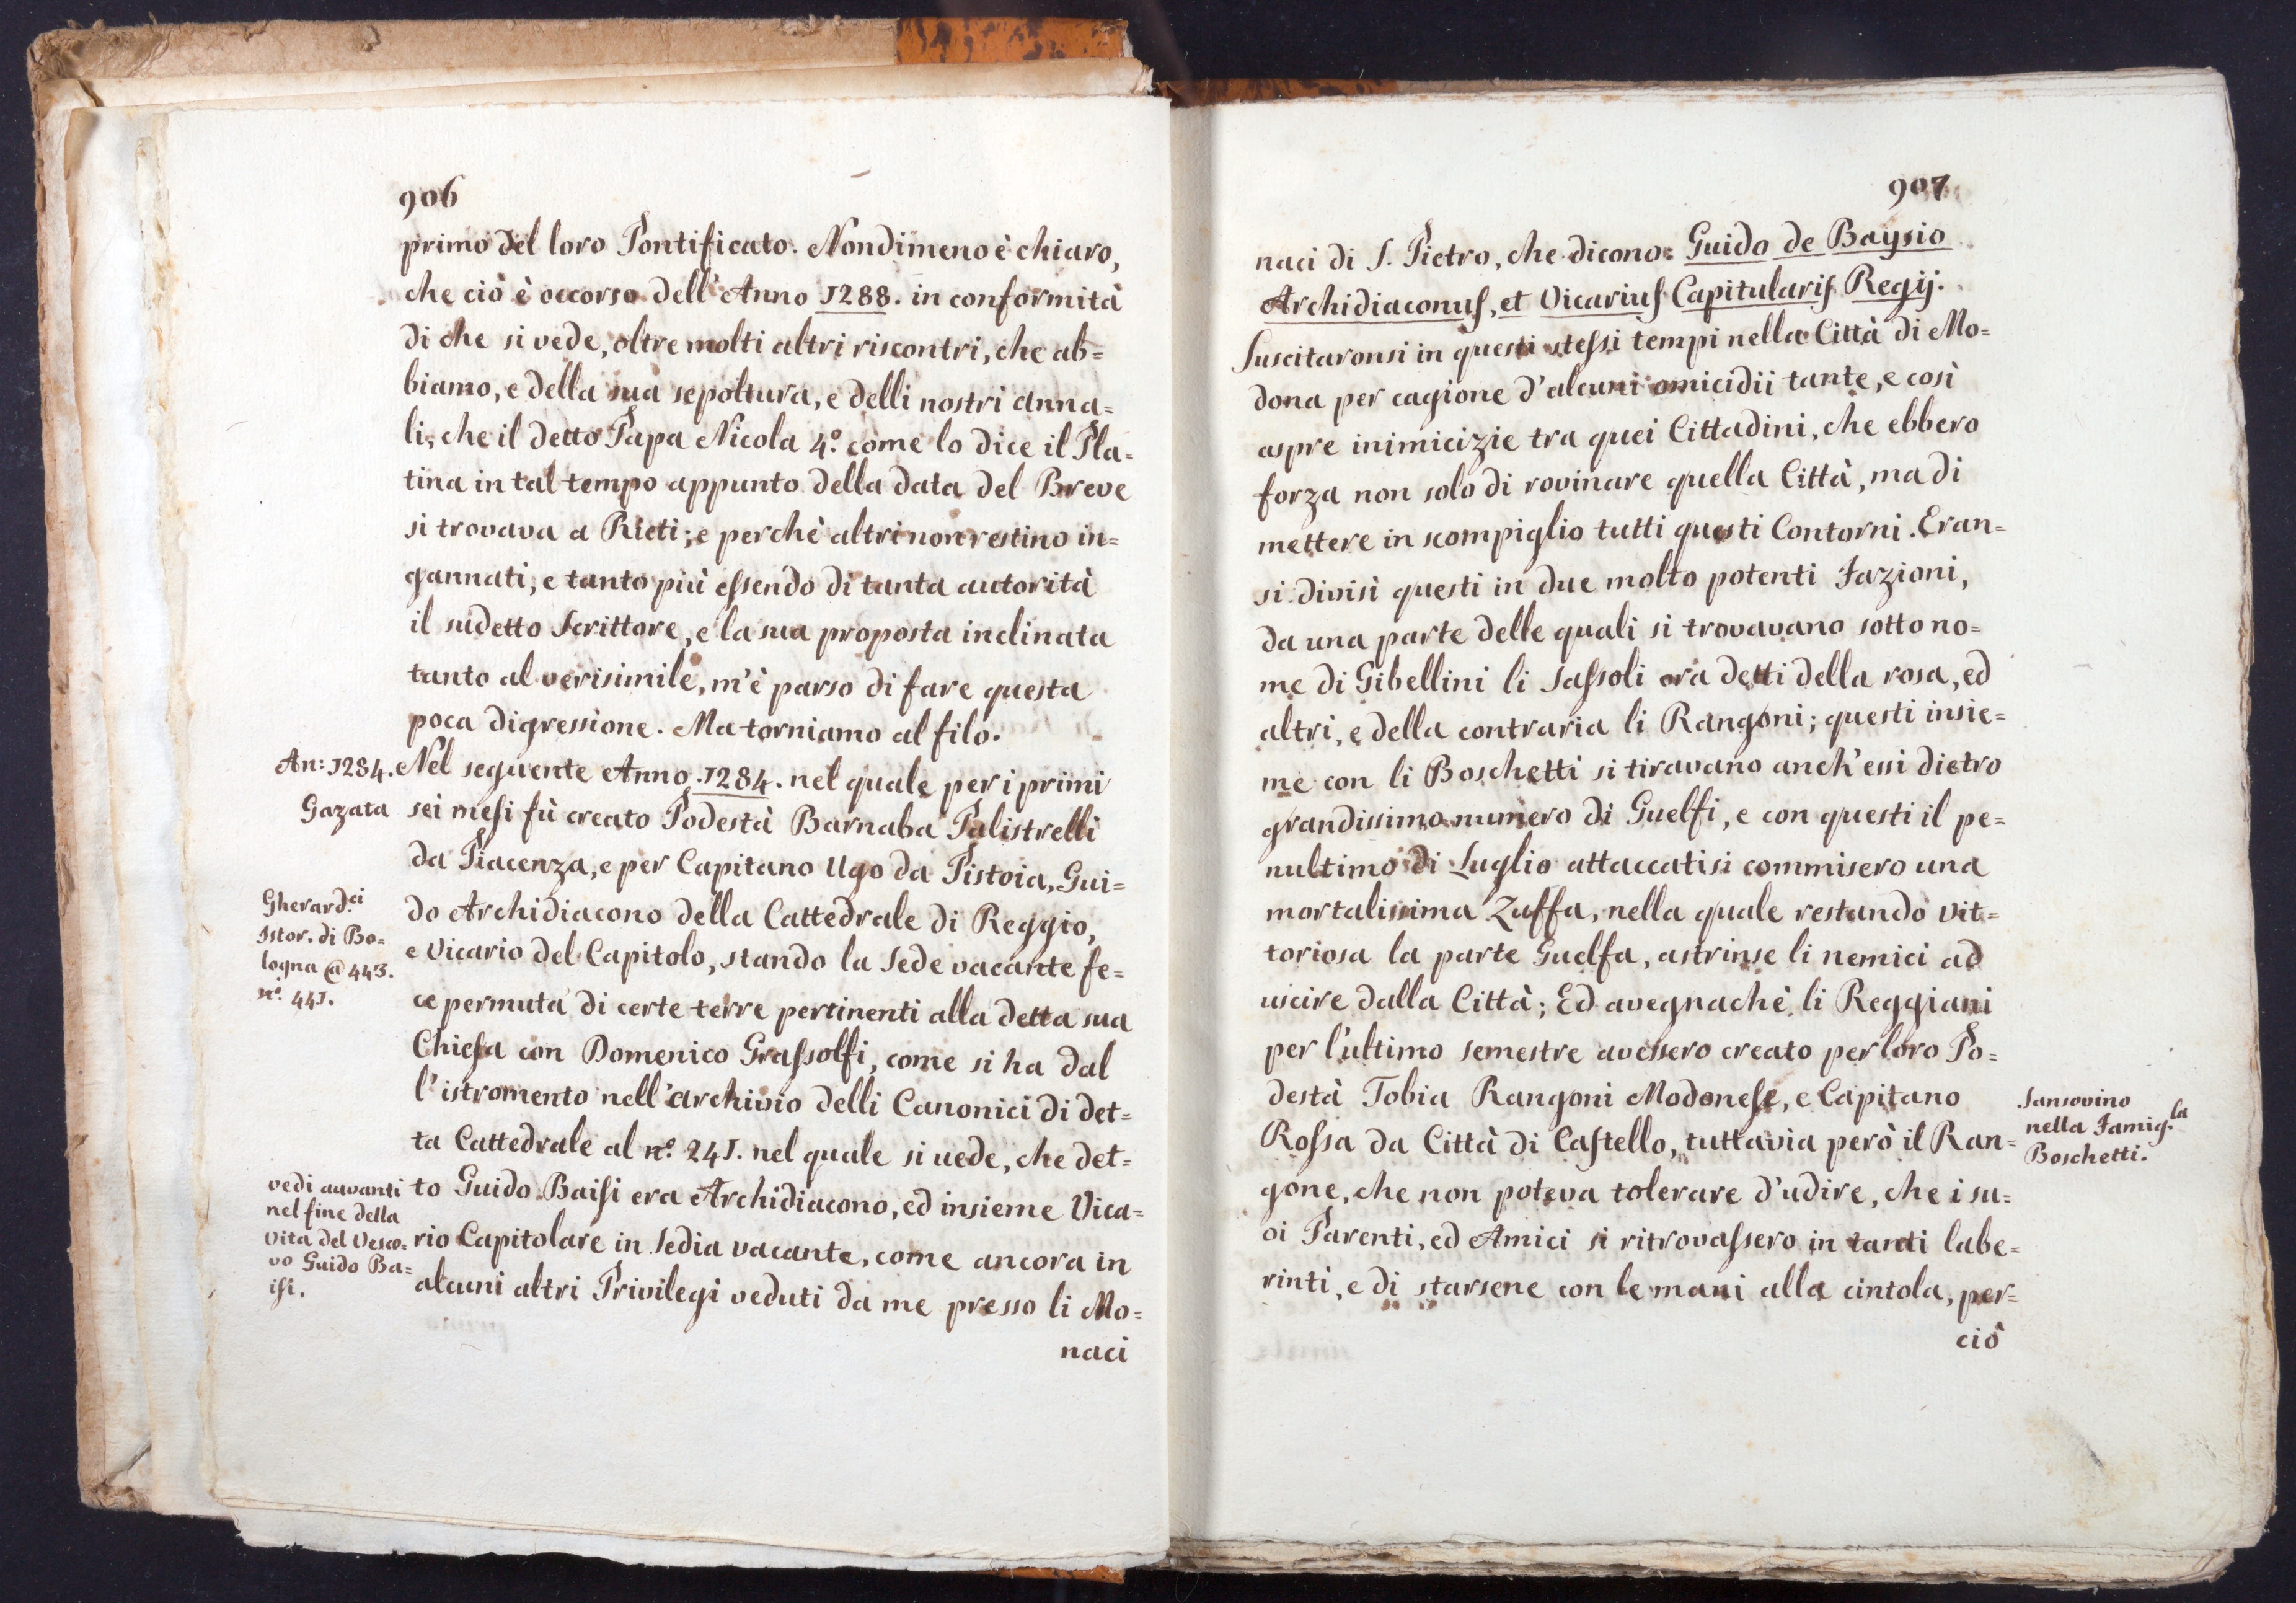 906
primo del loro Pontificato. Nondimeno è chiaro,
che ciò è occorso dell'Anno 1288. in conformità
di che si vede, oltre molti altri riscontri, che ab=
biamo, e della sua sepoltura, e delli nostri anna=
li, che il detto Papa Nicola 4.º come lo dice il Pla=
tina in tal tempo appunto della data del Breve
si trovava a Rieti; e perchè altri non restino in=
gannati, e tanto più essendo di tanta autorità
il sudetto Scrittore, e la sua proposta inclinata
tanto al verisimile, m'è parso di fare questa
poca digressione. Ma torniamo al filo.
An: 1284.
Gazata
Nel seguente Anno .1284. nel quale per i primi
sei mesi fù creato Podestà Barnaba Palistrelli
da Piacenza, e per Capitano Ugo da Pistoia, Gui=
Gherard.ci
Istor. di Bo=
logna @ 443.
nº. 441.
do Archidiacono della Cattedrale di Reggio,
e Vicario del Capitolo, stando la Sede vacante fe=
ce permuta di certe terre pertinenti alla detta sua
Chiesa con Domenico Grassolfi, come si ha dal
l'istromento nell'archivio delli Canonici di det=
ta Cattedrale al nº. 241. nel quale si uede, che det=
vedi auvanti
nel fine della
Vita del Vesco=
vo Guido Ba=
isi.
to Guido Baisi era Archidiacono, ed insieme Vica=
rio Capitolare in Sedia vacante, come ancora in
alcuni altri Privilegi veduti da me presso li Mo=
naci
907
naci di S. Pietro, che dicono: Guido de Baysio
Archidiaconus, et Vicarius Capitularis Regij.
Suscitaronsi in questi stessi tempi nella Città di Mo=
dona per cagione d'alcuni omicidii tante, e così
aspre inimicizie tra quei Cittadini, che ebbero
forza non solo di rovinare quella Città, ma di
mettere in scompiglio tutti questi Contorni. Eran=
si divisi questi in due molto potenti Fazioni,
da una parte delle quali si trovavano sotto no=
me di Gibellini li Sassoli ora detti della rosa, ed
altri, e della contraria li Rangoni; questi insie=
me con li Boschetti si tiravano anch'essi dietro
grandissimo numero di Guelfi, e con questi il pe=
nultimo di Luglio attaccatisi commisero una
mortalissima Zuffa, nella quale restando vit=
toriosa la parte Guelfa, astrinse li nemici ad
uscire dalla Città; Ed avegnachè li Reggiani
per l'ultimo semestre avessero creato per loro Po=
destà Tobia Rangoni Modonese, e Capitano
Rossa da Città di Castello, tuttavia però il Ran=
Sansovino
nella Famig.la
Boschetti.
gone, che non poteva tolerare d'udire, che i su=
oi Parenti, ed Amici si ritrovassero in tanti labe=
rinti, e di starsene con le mani alla cintola, per=
ciò